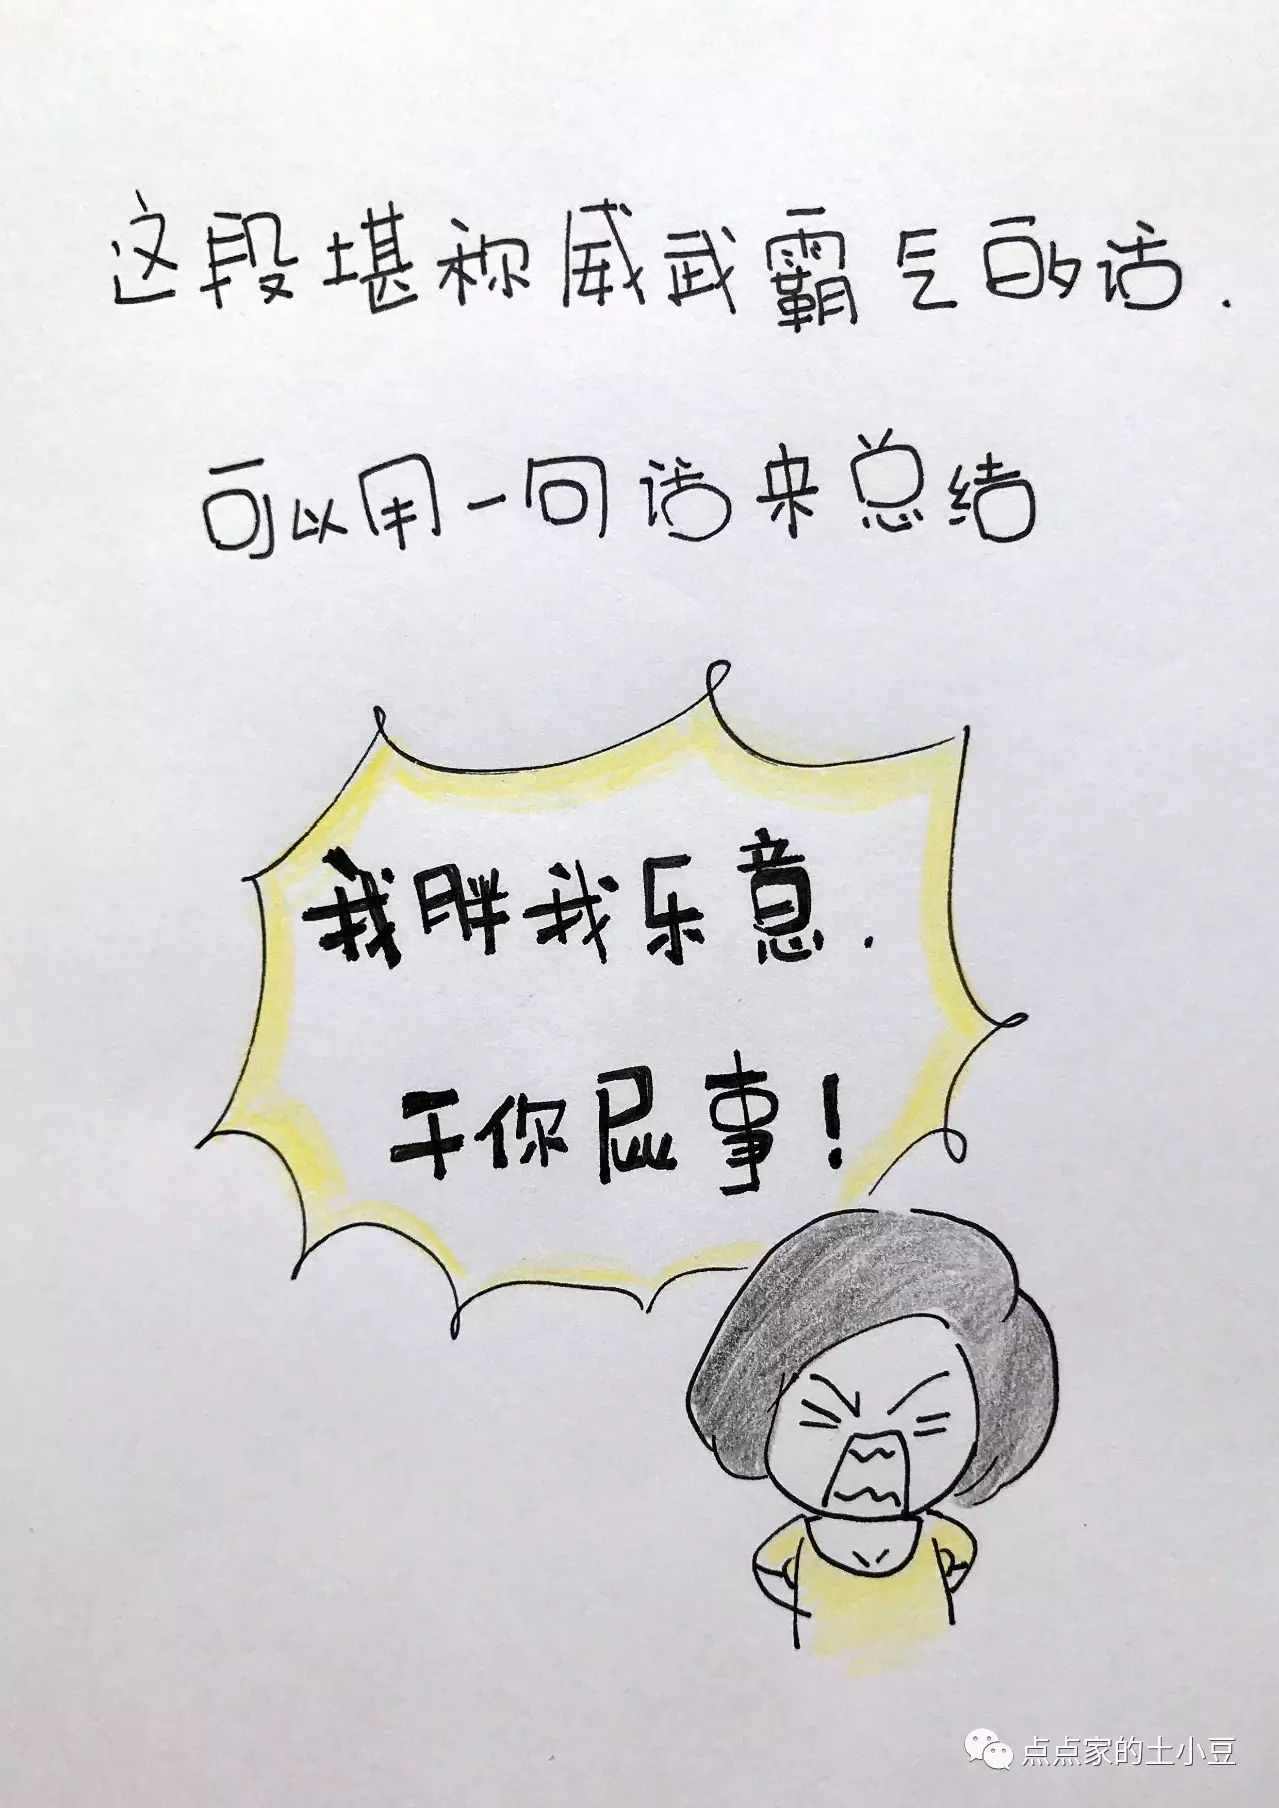 这段堪称威武霸气的话.
可以用一句话来总结
我胖我乐意.
干你屁事!
点点家的土小豆